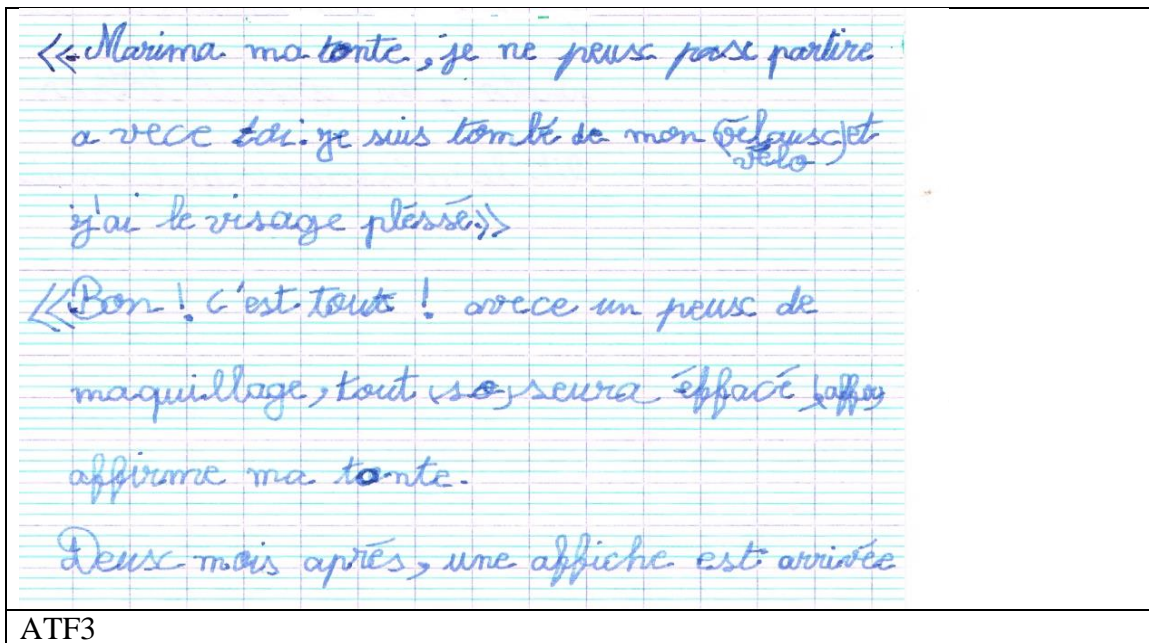 <<Marima ma tonte, je ne peux pasx partire
a vece toi. je suis tombé de mon (vélaux) et
vélo
j'ai le visage pléssé.>>
<<Bon ! C'est tout ! avece un peux de
maquillage, tout (so) seura éffacé (affa)
affirme ma tonte.
Deux mois aprés, une affiche est arrivée
ATF3